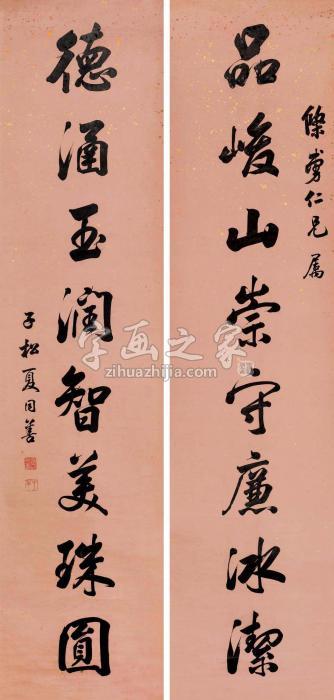 品峻山崇守廉冰潔
仁兄屬
德涵玉潤智美珠圓
子松夏同善
字画之家
zihuazhijia.com